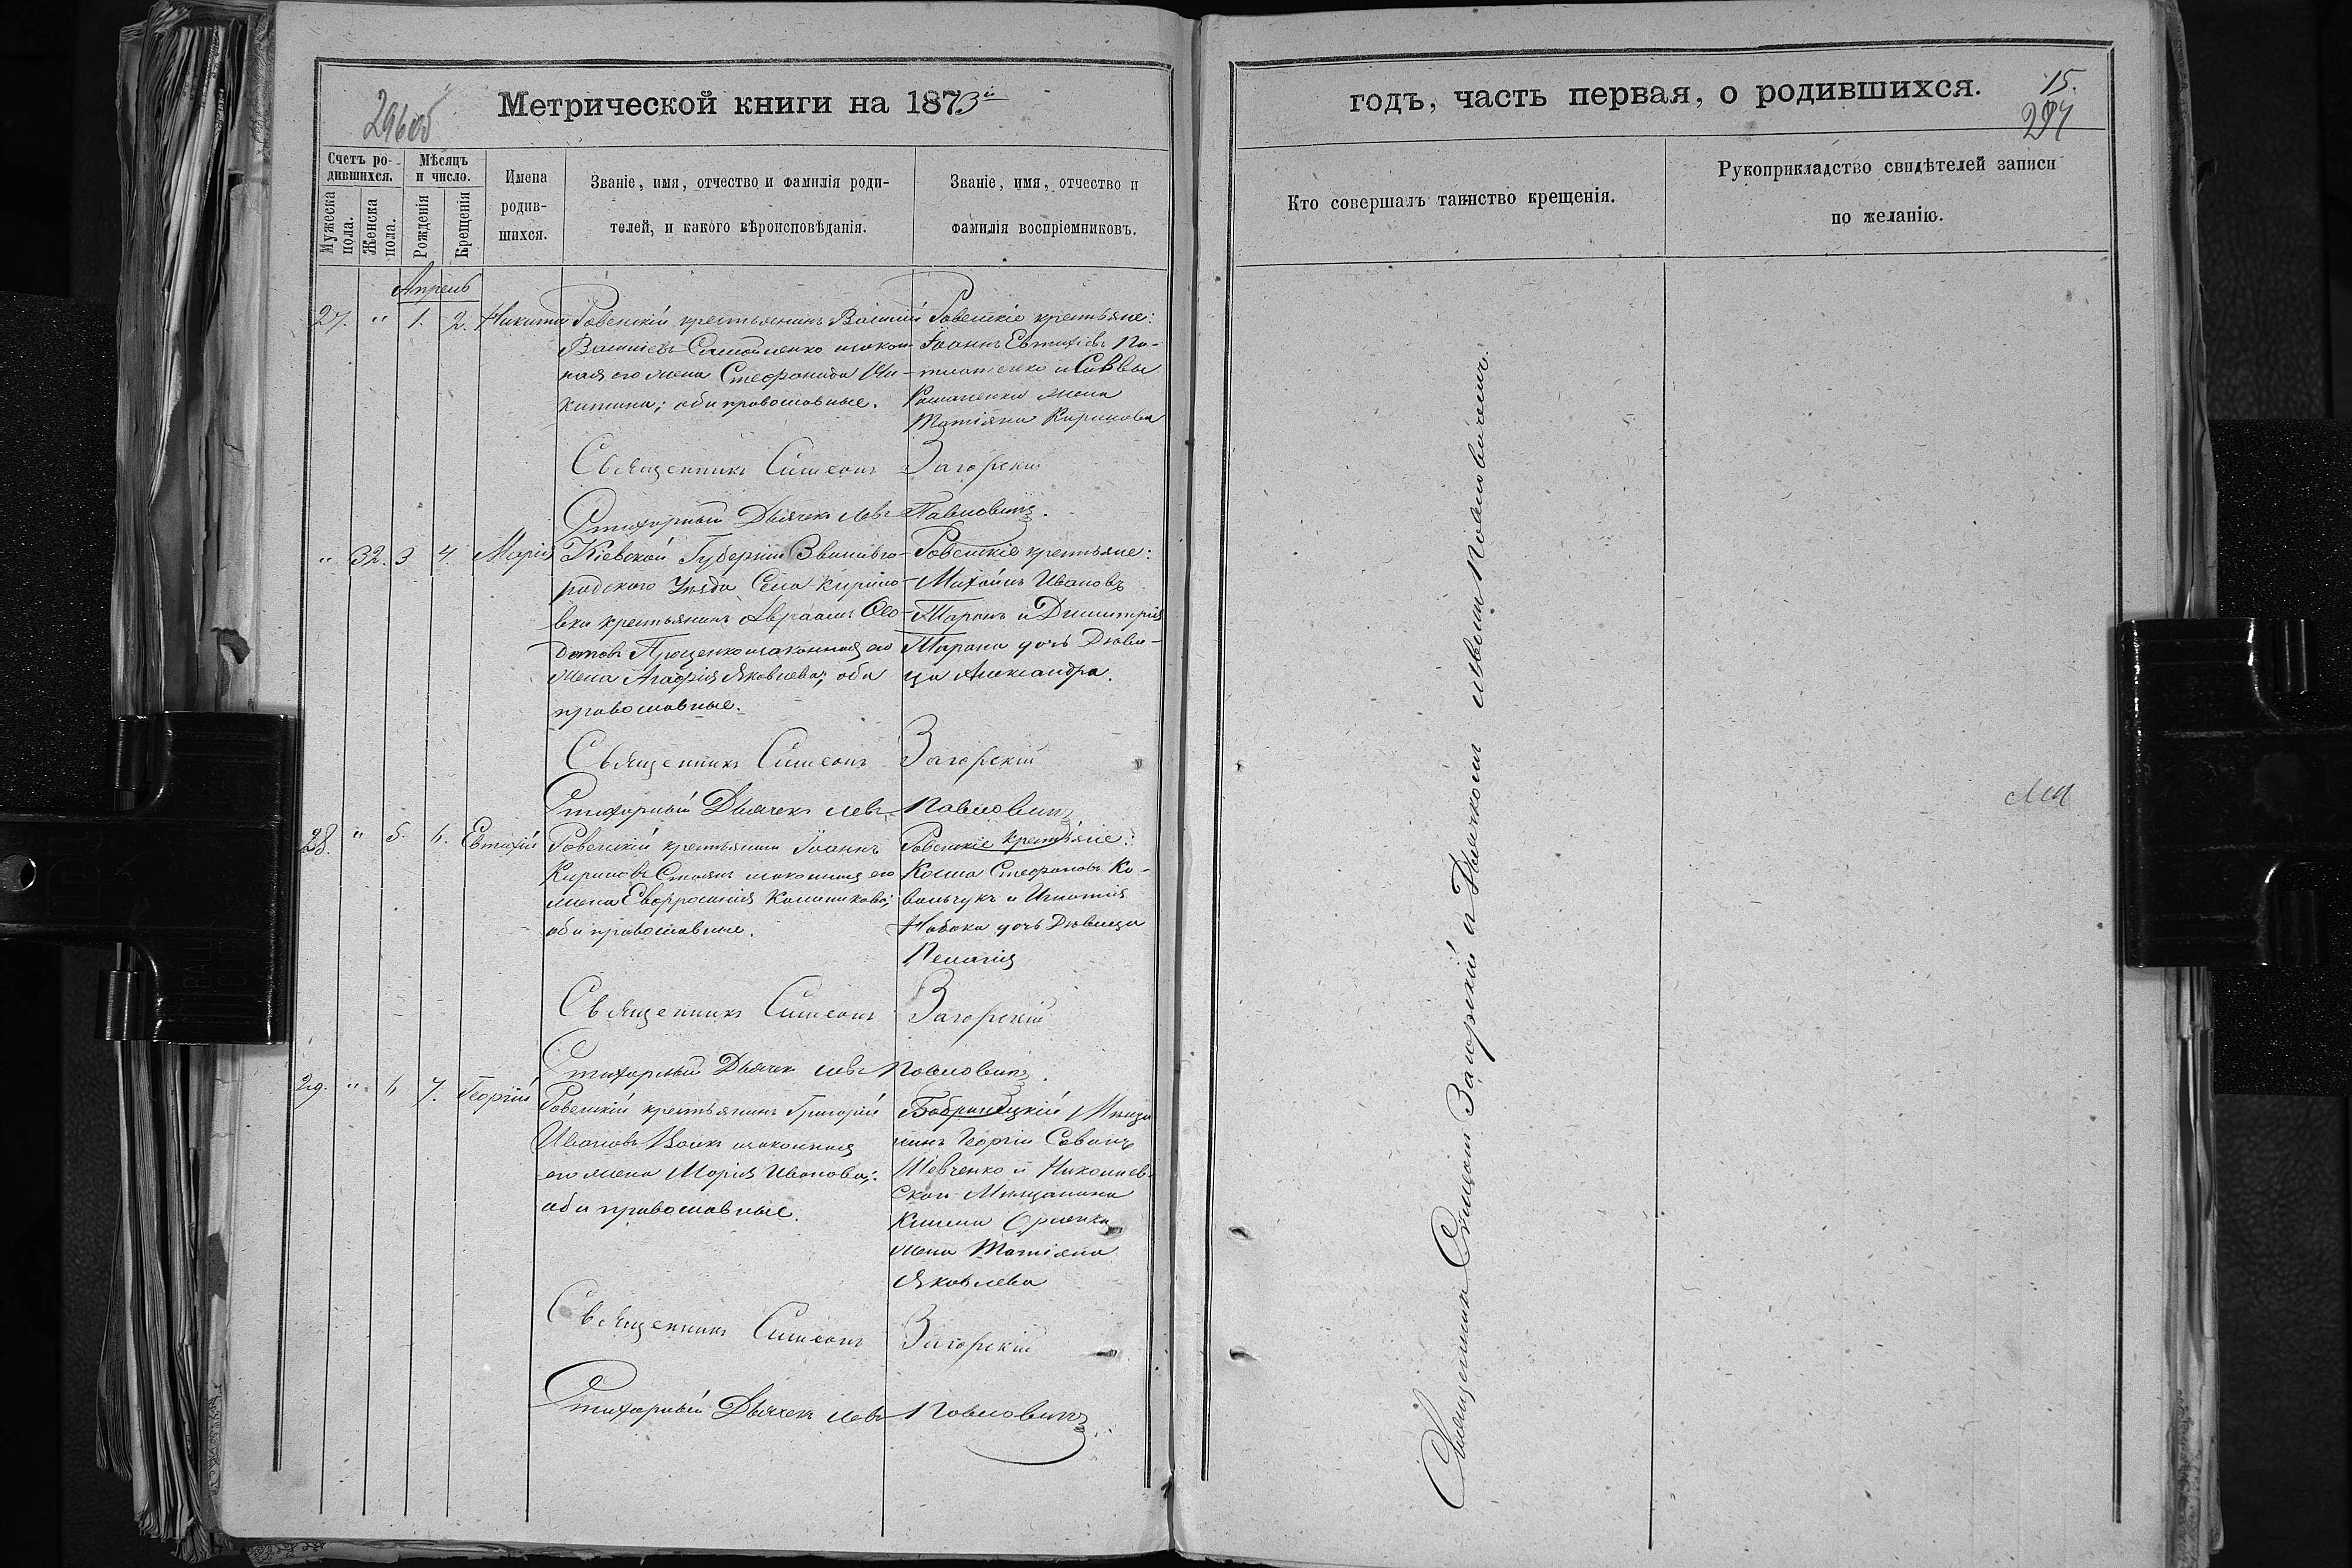 Метрической книги на 1873й
296об
Счетъ ро-
дившихся.
Мужеска
пола.
Женска
пола.
Мѣсяцъ
и число.
Рожденія
Крещенія
Имена
родив-
шихся.
Званіе, имя, отчество и фамилія роди-
телей, и какого вѣроисповѣданія.
Званіе, имя, отчество и
фамилія воспріемниковъ.
Апрель
27. " 1. 2. Никита
Ровенскій крестьянинъ Василій
Василіевъ Самойленко изакон-
ная его жена Стефанида Ни-
китина; оба православные.
Ровенскіе крестьяне:
Іоаннъ Евтихіевъ
и Саввы
Романенка жена
Татіана Кирилова
Священникъ Симеонъ Загорскій
Стихарный Дьячекъ Левъ Павловичъ.
" 32. 3 4. Марія
Кіевской Губерніи Звениго-
родского Уѣзда Села Кирило-
вки крестьянинъ Авраамъ Ѳео-
датовъ изаконная его
жена Агафія Яковлева; оба
православные.
Ровенскіе крестьяне:
Михаилъ Ивановъ
Таранъ и Димитрія
Тарана дочь Дѣви-
ца Александра.
Священникъ Симеонъ Загорскій
Стихарный Дьячекъ Левъ Павловичъ
28. " 5. 6. Евтихій
Ровенскій крестьянинъ Іоаннъ
Кириловъ изаконная его
жена Евфросинія Калиникова;
оба православные.
Ровенскіе крестьяне:
Косма Стефановъ Ко-
вальчукъ и Игнатія
Набока дочь Дѣвица
Пелагія
Священникъ Симеонъ Загорскій
Стихарный Дьячекъ Левъ Павловичъ.
29. " 6 7. Георгій
Ровенскій крестьянинъ Григорій
Ивановъ изаконная
его жена Марія Иванова;
оба православные.
Бобринецкій Мѣща
нинъ Георгій Савинъ
Шевченко и Николаев-
ской Мѣщанина
жена Татіана
Яковлева
Священникъ Симеонъ Загорскій
Стихарный Дьячекъ Левъ Павловичъ
годъ, часть первая, о родившихся.
15.
297
Кто совершалъ таинство крещенія.
Рукоприкладство свидѣтелей записи
по желанію.
Священникъ Симеонъ Загорскій съ Дьячкомъ Львомъ Павловичемъ.